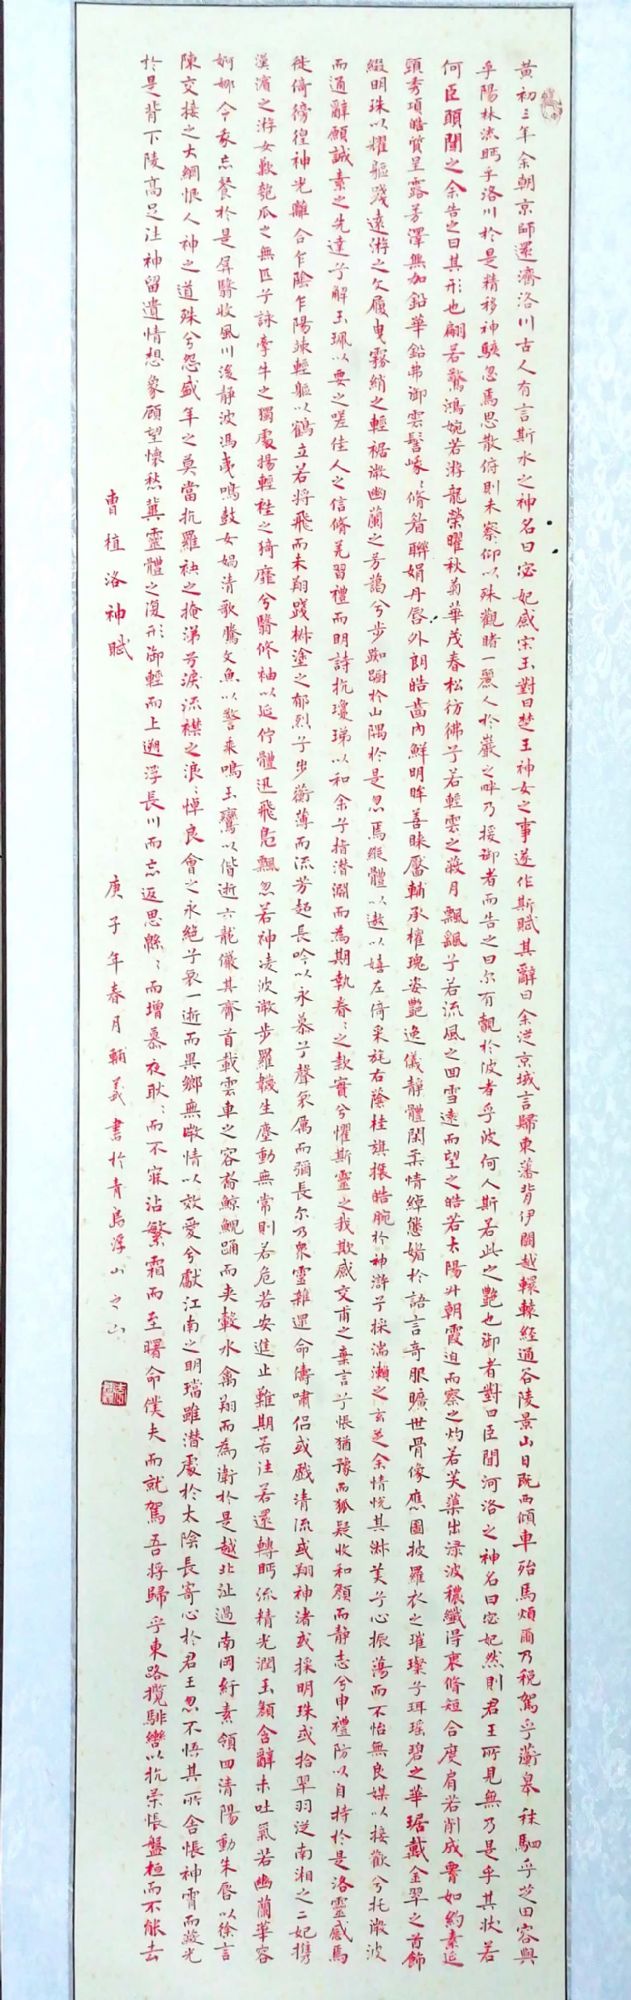 黄初三年余朝京師還濟洛川古人有言斯水之神名曰宓妃感宋玉對曰楚王神女之事遂作斯賦其辭曰余從京域言歸東藩背伊闕越轘轅經通谷陵景山日既西傾車殆馬煩爾乃稅駕乎蘅皋秣駟乎芝田容與
乎陽林流眄乎洛川於是精移神駭忽焉思散俯則未察仰以殊觀睹一麗人於巖之畔乃援御者而告之曰尔有覿於彼者乎彼何人斯若此之艷也御者對曰臣聞河洛之神名曰宓妃然則君王所見無乃是乎其狀若
何臣願聞之余告之曰其形也翩若驚鴻婉若游龍榮曜秋菊華茂春松彷彿兮若輕雲之蔽月飄颻兮若流風之回雪遠而望之皓若太陽升朝霞迫而察之灼若芙蕖出淥波穠纖得衷脩短合度肩若削成腰如約素延
頸秀項皓質呈露芳澤無加鉛華弗御雲髻峨〻脩眉聯娟丹唇外朗皓齒內鮮明眸善睞靨輔承權瑰姿艷逸儀靜體閑柔情綽態媚於語言奇服曠世骨像應圖披羅衣之璀璨兮珥瑶碧之華琚戴金翠之首飾
綴明珠以耀軀踐遠游之文履曳霧綃之輕裾微幽蘭之芳藹兮步踟躕於山隅於是忽焉縱體以遨以嬉左倚采旄右蔭桂旗攘皓腕於神滸兮採湍瀨之玄芝余情悅其淑美兮心振蕩而不怡無良媒以接歡兮托微波
而通辭願誠素之先達兮解玉珮以要之嗟佳人之信脩羌習禮而明詩抗瓊珶以和余兮指潜淵而為期執眷〻之款實兮懼斯靈之我欺感交甫之棄言兮悵猶豫而狐疑收和顏而靜志兮申禮防以自持於是洛靈感焉
徙倚徬徨神光離合乍陰乍陽竦輕軀以鶴立若將飛而未翔踐椒塗之郁烈兮步蘅薄而流芳超長吟以永慕兮聲哀厲而彌長尔乃衆靈雜遝命儔嘯侶或戲清流或翔神渚或採明珠或拾翠羽從南湘之二妃攜
漢濱之游女歎匏瓜之無匹兮詠牽牛之獨處揚輕袿之猗靡兮翳修袖以延佇體迅飛鳧飄忽若神凌波微步羅韈生塵動無常則若危若安進止難期若往若還轉眄流精光潤玉顏含辭未吐氣若幽蘭華容
婀娜令我忘餐於是屏翳收風川後靜波馮夷鳴鼓女媧清歌騰文魚以警乘鳴玉鸞以偕逝六龍儼其齊首載雲車之容裔鯨鯢踊而夾轂水禽翔而為衛於是越北沚過南岡紆素領回清陽動朱唇以徐言
陳交接之大綱恨人神之道殊兮怨盛年之莫當抗羅袂之掩涕兮淚流襟之浪〻悼良會之永絶兮哀一逝而異鄉無微情以效愛兮獻江南之明璫雖潜處於太陰長寄心於君王忽不悟其所舍悵神霄而蔽光
於是背下陵高足往神留遺情想象顧望懷愁冀靈體之復形御輕而上遡浮長川而忘返思綿〻而增慕夜耿〻而不寐沾繁霜而至曙命僕夫而就駕吾將歸乎東路攬騑轡以抗策悵盤桓而不能去
曹植洛神賦
庚子年春月輔義書於青島浮山之山